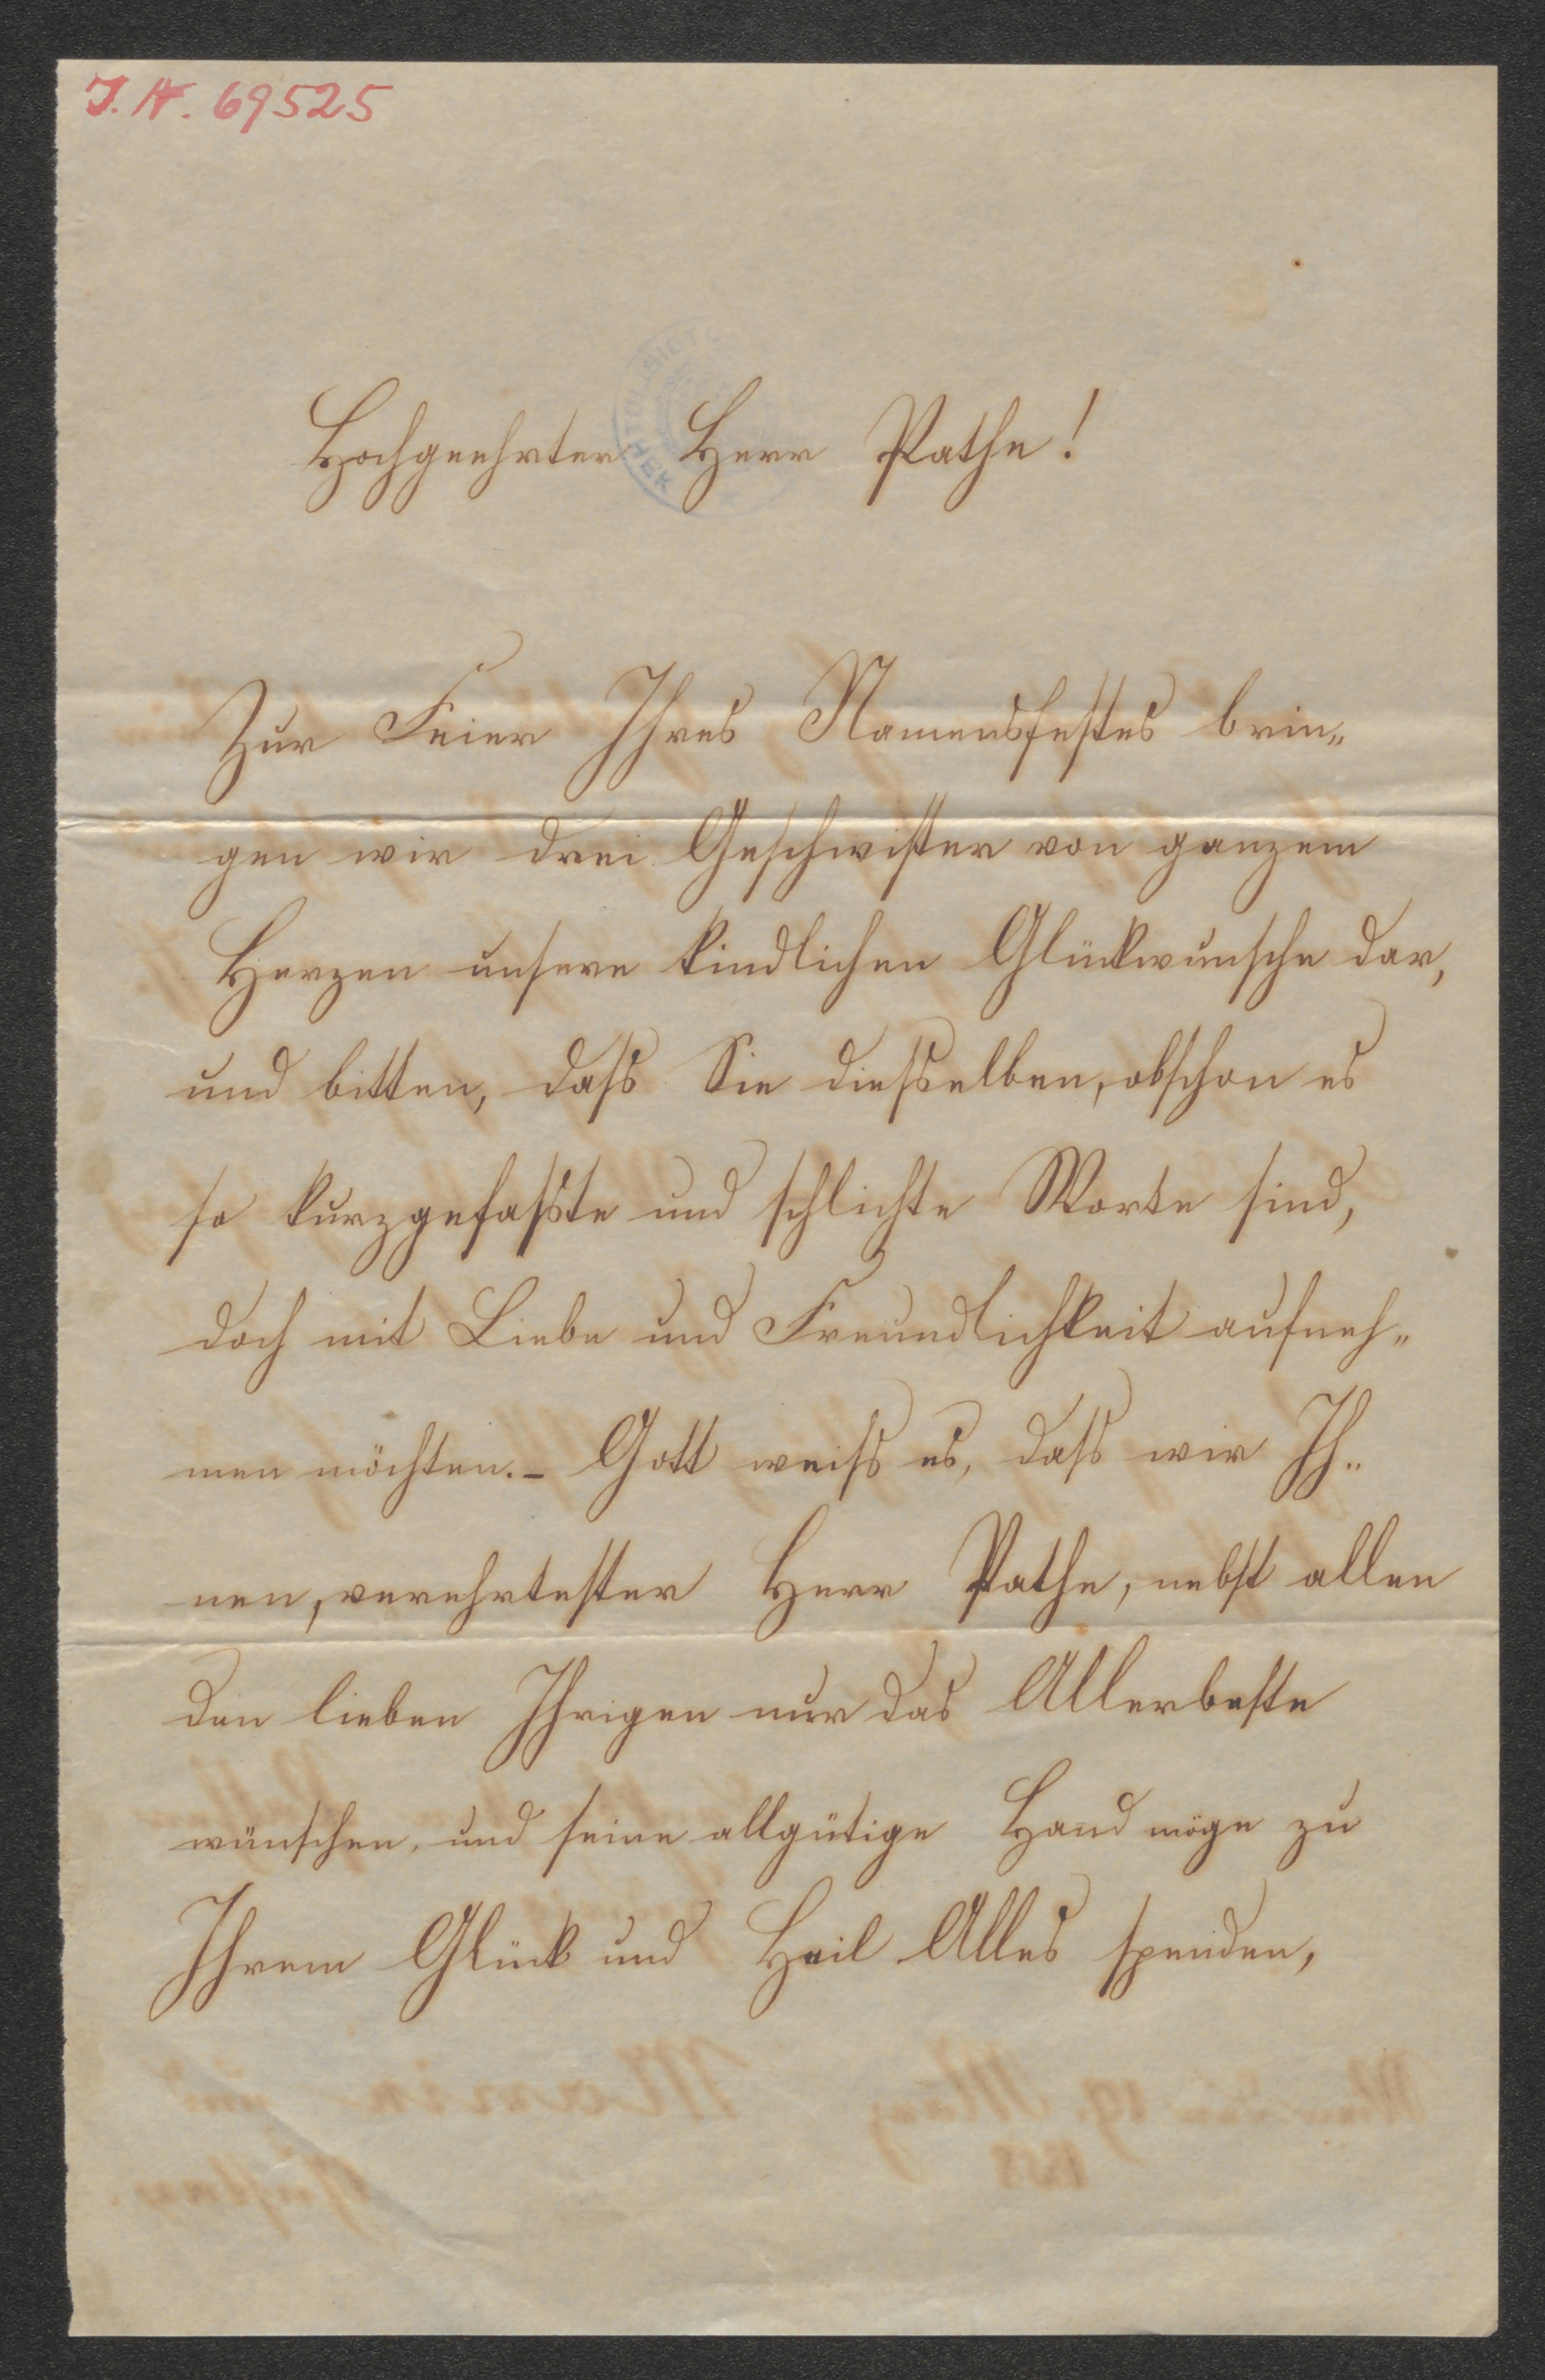 I.N. 69525
Hochgeehrter Herr Pathe!
Zur Feier Ihres Namensfestes brin„
gen wir drei Geschwister von ganzem
Herzen unsere kindlichen Glückwunsche dar,
und bitten, daſs Sie dieſselben, obschon es
so kurzgefaſste und schlichte Worte sind,
doch mit Liebe und Freundlichkeit aufneh„
men möchten.– Gott weiſs es, daſs wir Ih„
nen, verehrtester Herr Pathe, nebst allen
den lieben Ihrigen nur das Allerbeste
wünschen, und seine allgütige Hand möge zu
Ihrem Glück und Heil Alles spenden,